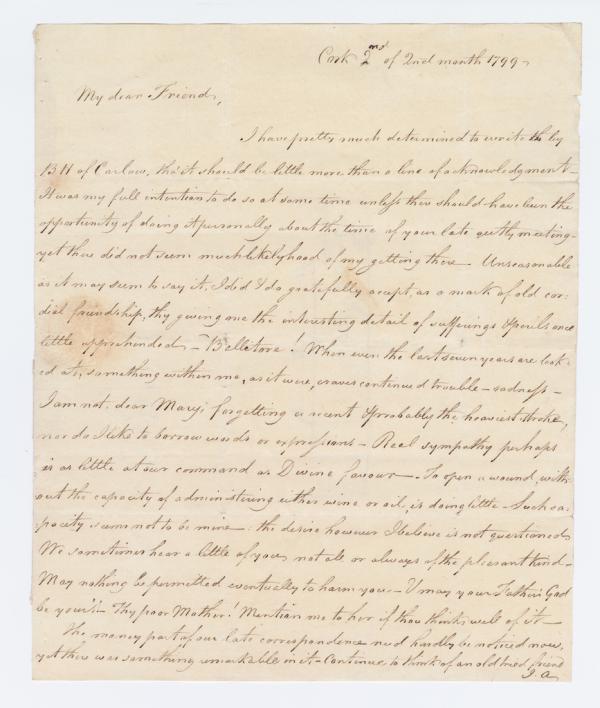 Cork 2nd of 2nd month 1799
My dear Friend,
I have pretty much determined to write thee by
BH of Carlow, tho' it should be little more than a line of acknowledgment –
It was my full intention to do so at some time unless there should have been the
opportunity of doing it personally about the time of your late qertly meeting –
yet there did not seem much likelyhood of my getting there – Unseasonable
as it may seem to say it, I did & do gratefully accept, as a mark of old cor=
dial friendship, thy giving me the interesting detail of sufferings & perils once
little apprehended – Belletore! When even the last seven years are look=
ed at, something within me, as it were, craves continued trouble – sadness –
I am not, dear Mary, forgetting a recent & probably the heaviest stroke,
nor do I like to borrow words or expressions – Real sympathy perhaps
is as little at our command as Divine favour – To open a wound, with=
out the capacity of administering either wine or oil, is doing little – Such ca=
pacity seems not to be mine – the desire however I believe is not questioned
We sometimes hear a little of you, not all or always of the pleasant kind –
May nothing be permitted eventually to harm you – & may your Father's God
be your's – Thy poor Mother! Mention me to her if thou thinks well of it –
The money part of our late correspondence need hardly be noticed now,
yet there was something remarkable in it – Continue to think of an old tried friend